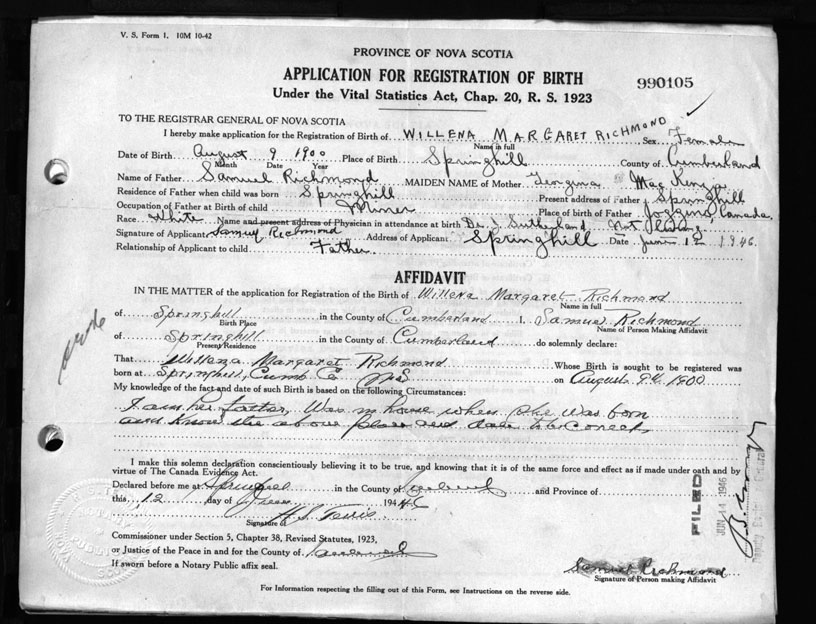 V. S. Form 1. 10M 10-42
PROVINCE OF NOVA SCOTIA
APPLICATION FOR REGISTRATION OF BIRTH
990105
Under the Vital Statistics Act, Chap. 20, R. S. 1923
TO THE REGISTRAR GENERAL OF NOVA SCOTIA
I hereby make application for the Registration of Birth of WILLENA MARGARET RICHMOND Sex Female
Name in full
Date of Birth August 9 1900 Place of Birth Springhill County of Cumberland
Month Date Year
Name of Father Samuel Richmond MAIDEN NAME of Mother Georgina Mac Kenzie
Residence of Father when child was born Springhill Present address of Father Springhill
Occupation of Father at Birth of child Miner Place of birth of Father Joggins, Canada.
Race White Name and present address of Physician in attendance at birth Dr. J. Sutherland Not
Signature of Applicant Samuel Richmond Address of Applicant Springhill Date June 12 1946.
Relationship of Applicant to child Father
AFFIDAVIT
IN THE MATTER of the application for Registration of the Birth of Willena Margaret Richmond
Name in full
of Springhill in the County of Cumberland I, Samuel Richmond
Birth Place Name of Person Making Affidavit
of Springhill in the County of Cumberland do solemnly declare:
Present Residence
That Willena Margaret Richmond Whose Birth is sought to be registered was
born at Springhill, Cumb. Co on August 1900
My knowledge of the fact and date of such Birth is based on the following Circumstances:
I am her father, Was in house when she was born
and know the above place and date to be correct
I make this solemn declaration conscientiously believing it to be true, and knowing that it is of the same force and effect as if made under oath and by
virtue of The Canada Evidence Act.
Declared before me at in the County of and Province of
this 12 day of June 1946
Signature of
Commissioner under Section 5, Chapter 38, Revised Statutes, 1923,
or Justice of the Peace in and for the County of
If sworn before a Notary Public affix seal.
Samuel Richmond
Signature of Person making Affidavit
For Information respecting the filling out of this Form, see Instructions on the reverse side.
FILED
JUN 14 1946